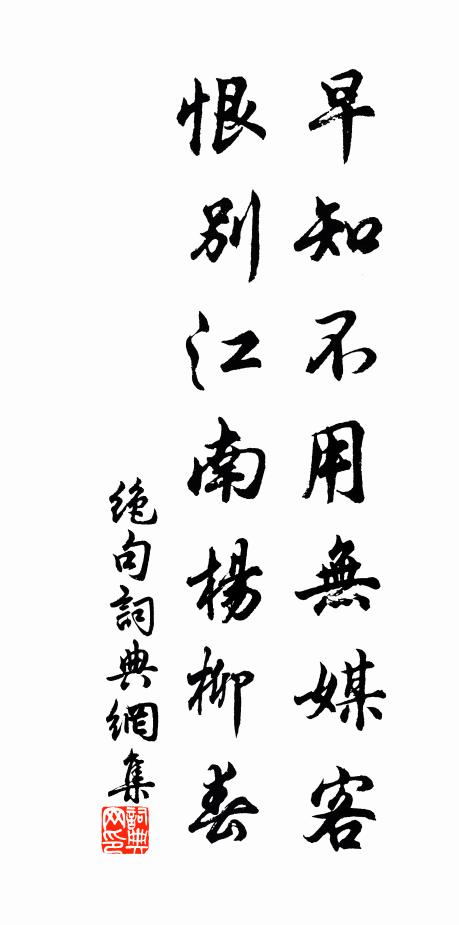 早知不用無媒客
恨別江南楊柳春
絶句詞典網集
詞典
网印